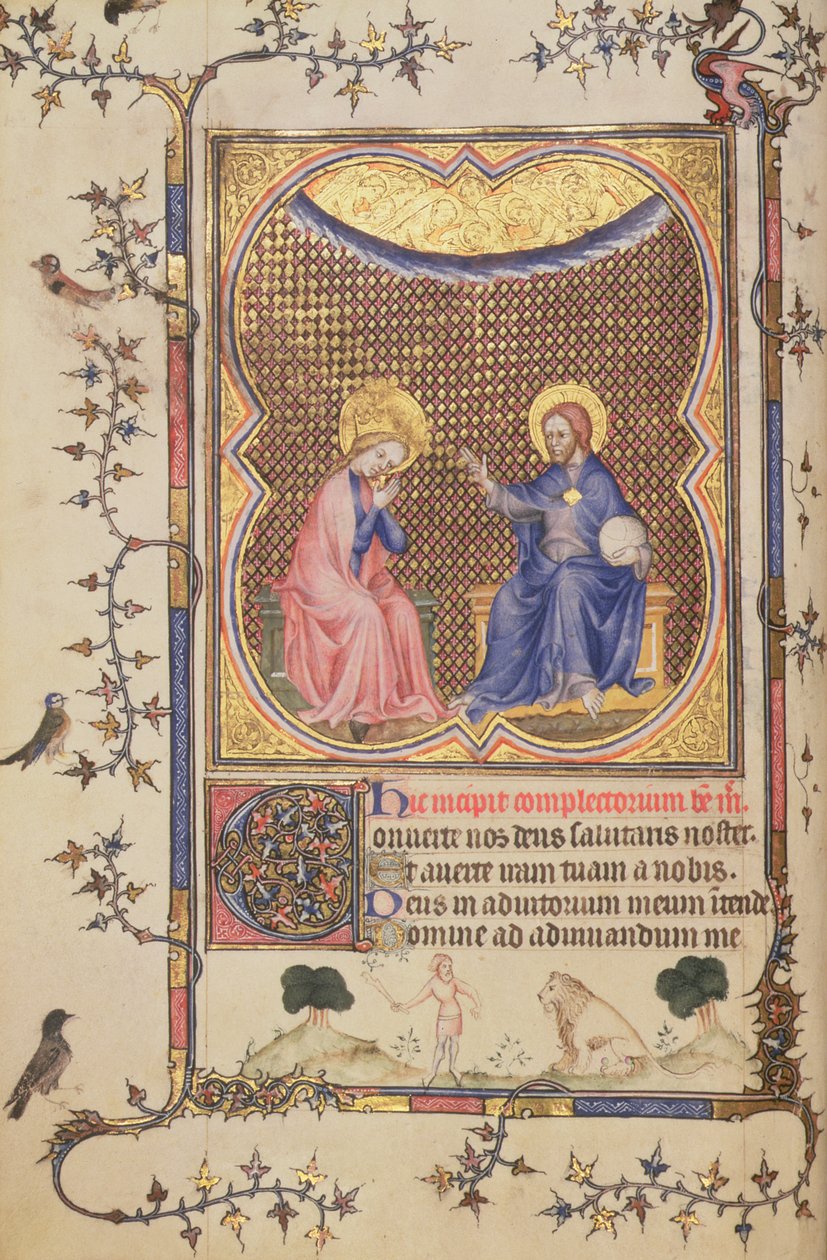 Hic incipit complectorium bē m̄.
Conuerte nos deus salutaris noster.
Et auerte iram tuam a nobis.
Deus in adiutorium meum ītende.
Domine ad adiuuandum me